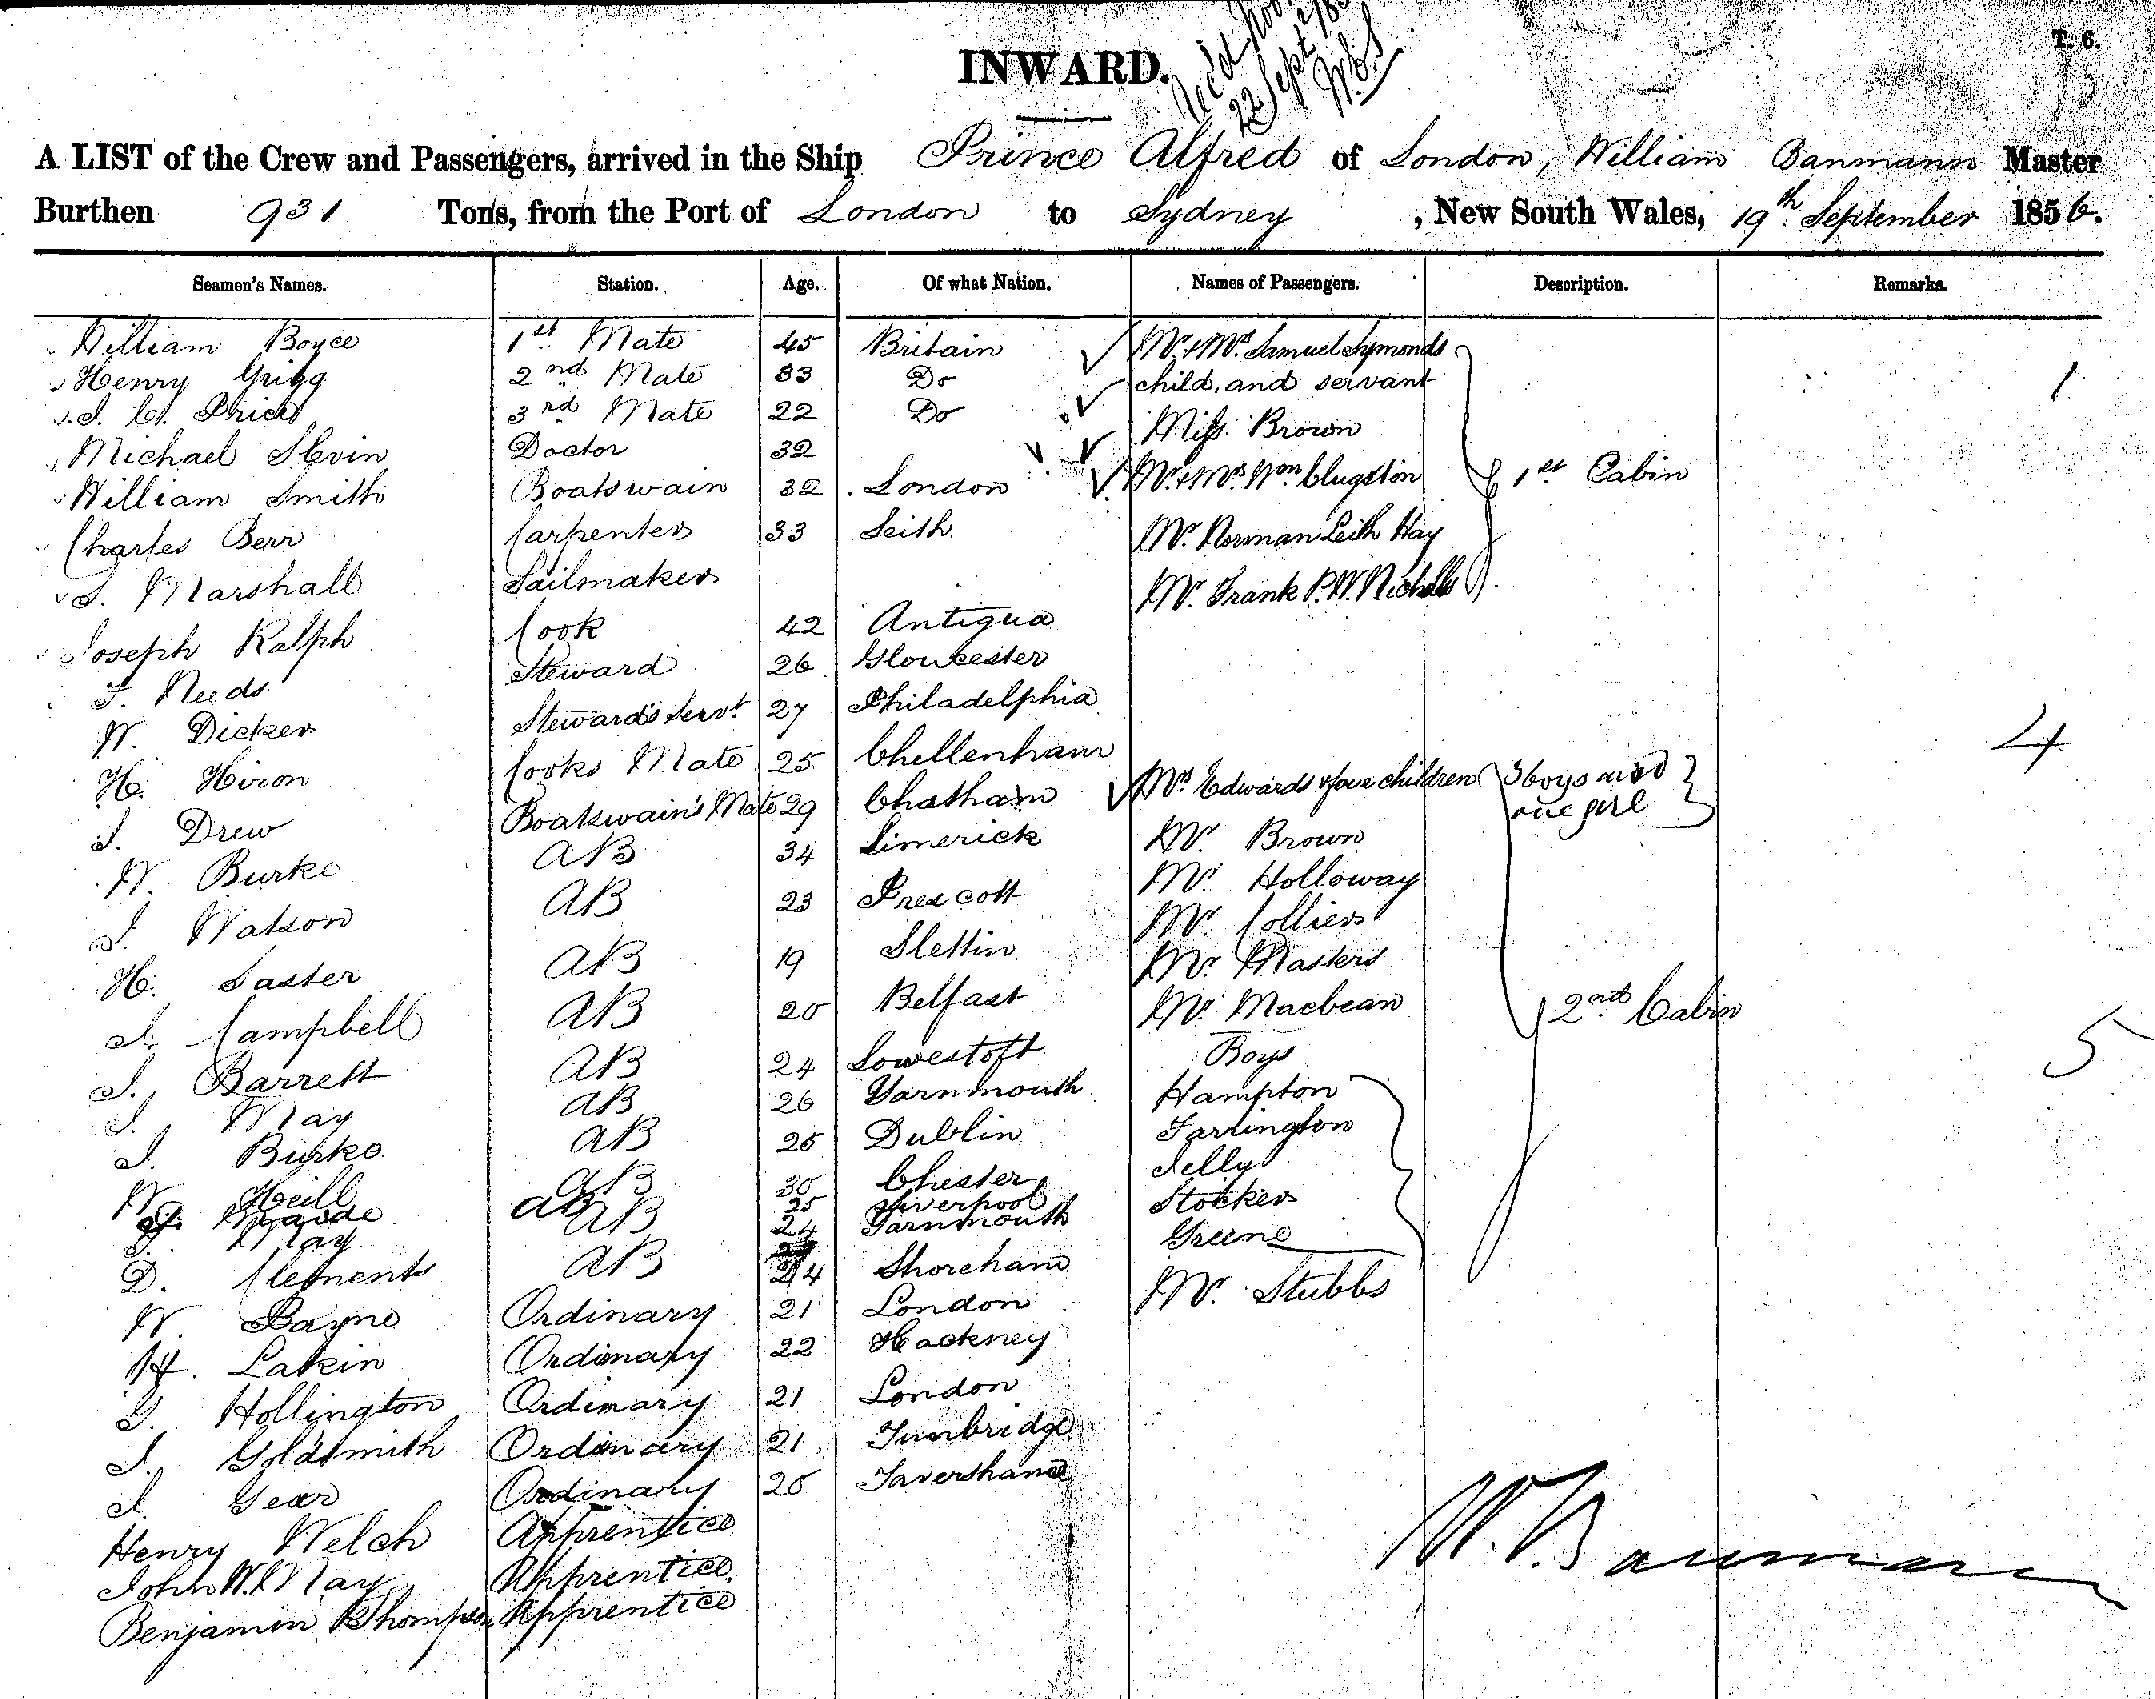 T. 6.
INWARD.
22 Sept
A LIST of the Crew and Passengers, arrived in the Ship Prince Alfred of London, William Banmann Master
Burthen 931 Tons, from the Port of London to Sydney, New South Wales, 19th September 1856.
Seamen's Names. Station. Age. Of what Nation. Names of Passengers. Description. Remarks.
William Boyce 1st Mate 45 Britain Mr & Mrs Samuel Symonds
Henry Grigg 2nd Mate 33 Do child, and servant 1
Price 3rd Mate 22 Do Miss Brown
Michael Slevin Doctor 32
William Smith Boatswain 32 London Mr & Mrs Wm Clugston 1st Cabin
Charles Berr Carpenter 33 Leith Mr. Norman Leith Hay
J. Marshall Sailmaker Mr. Frank P. W. Nicholls
Joseph Ralph Cook 42 Antigua
J. Needs Steward 26 Gloucester
W. Dicker Steward's Servt 27 Philadelphia 4
H. Hixon Cooks Mate 25 Chellenham Mrs Edwards & four children 3 boys and one girl
J. Drew Boatswain's Mate 29 Chatham Mr Brown
W. Burke AB 34 Limerick Mr Holloway
J. Watson AB 23 Prescott Mr Collier
H. Saster AB 19 Stettin Mr Masters
J. Campbell AB 20 Belfast Mr Macbean 2nd Cabin
J. Barrett AB 24 Lowestoft Boys 5
J. May AB 26 Yarnmouth Hampton
J. Burke AB 25 Dublin Farrington
W. Neill AB 30 Chester Jelly
AB 25 Liverpool Stocker
J. May AB 24 Yarnmouth Greene
D. Clements AB 24 Shoreham Mr. Stubbs
W. Bayne Ordinary 21 London
H. Lakin Ordinary 22 Hackney
G. Hollington Ordinary 21 London
J. Goldsmith Ordinary 21 Tunbridge
J. Gear Ordinary 20 Favershame
Henry Welch Apprentice
John W. May Apprentice
Benjamin R Thompson Apprentice
W. Banmann